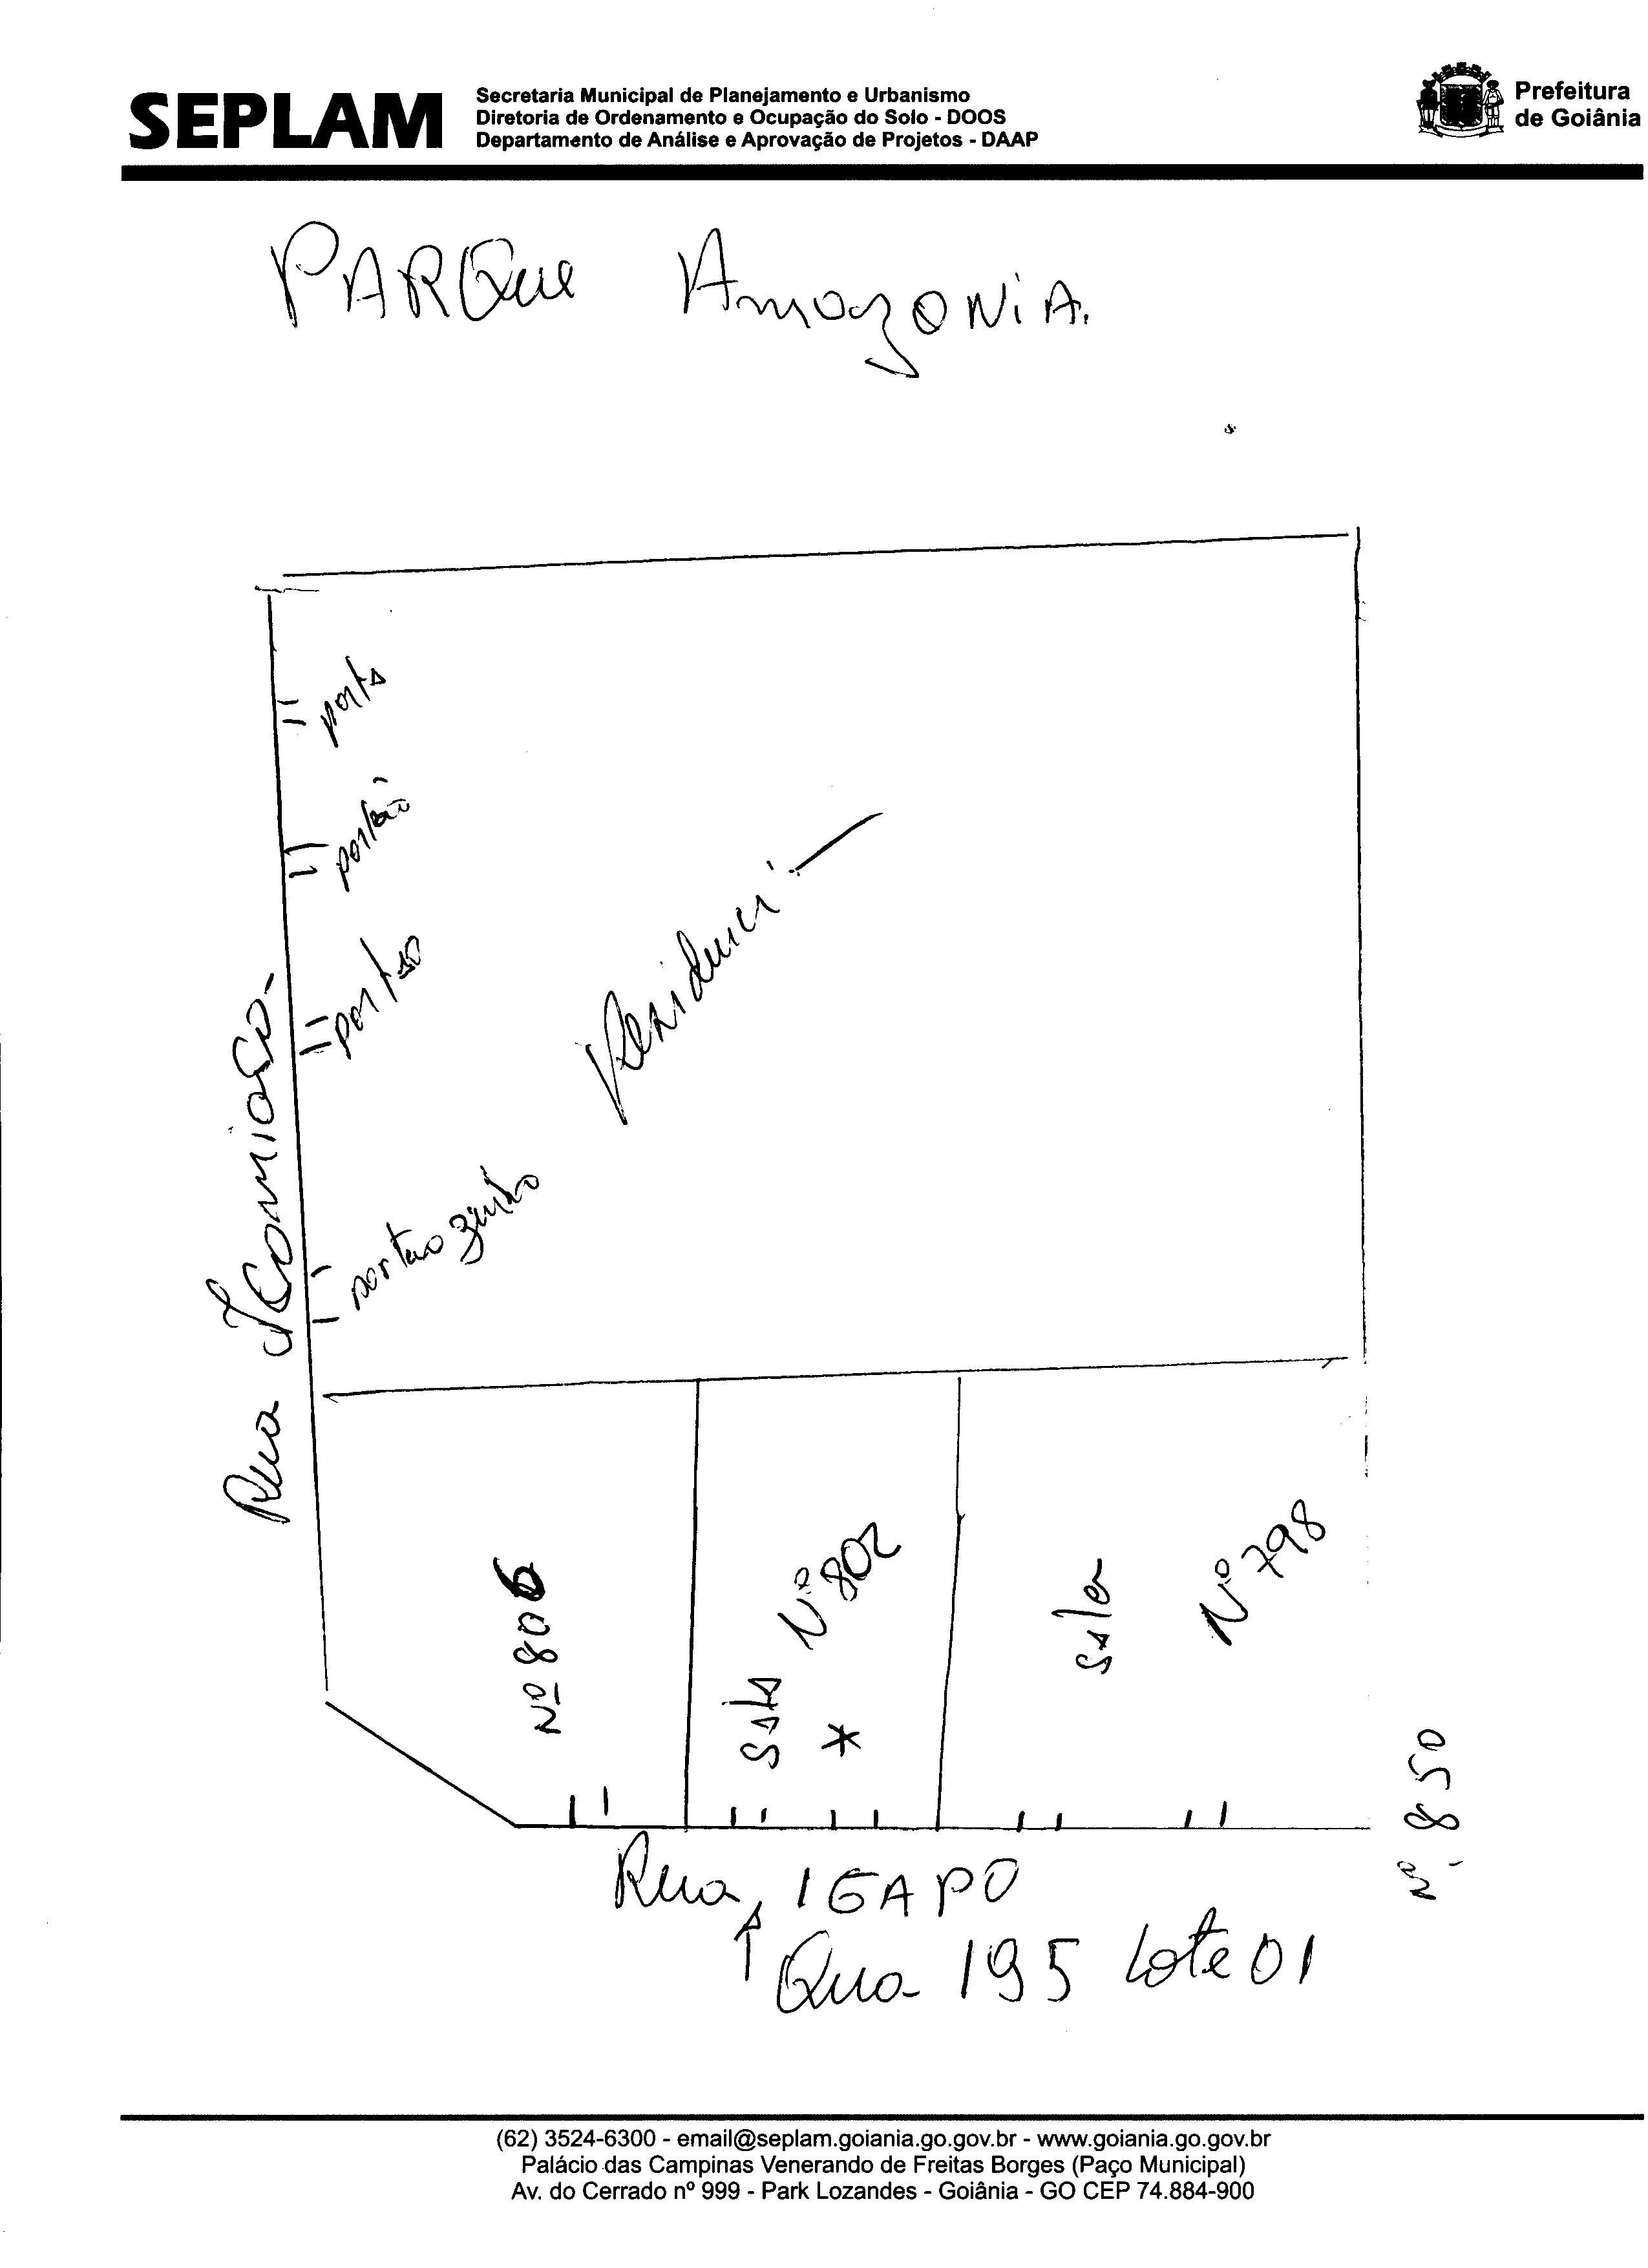 SEPLAM
Secretaria Municipal de Planejamento e Urbanismo
Diretoria de Ordenamento e Ocupação do Solo - DOOS
Departamento de Análise e Aprovação de Projetos - DAAP
Prefeitura
de Goiânia
PARQue AmazONiA.
porta
portão
portão
portãozinho
Rua
Nº 806
Sala Nº 802
*
Nº 798
Nº 850
Rua, IGAPO
Qua 195 Lote 01
(62) 3524-6300 - email@seplam.goiania.go.gov.br - www.goiania.go.gov.br
Palácio das Campinas Venerando de Freitas Borges (Paço Municipal)
Av. do Cerrado nº 999 - Park Lozandes - Goiânia - GO CEP 74.884-900